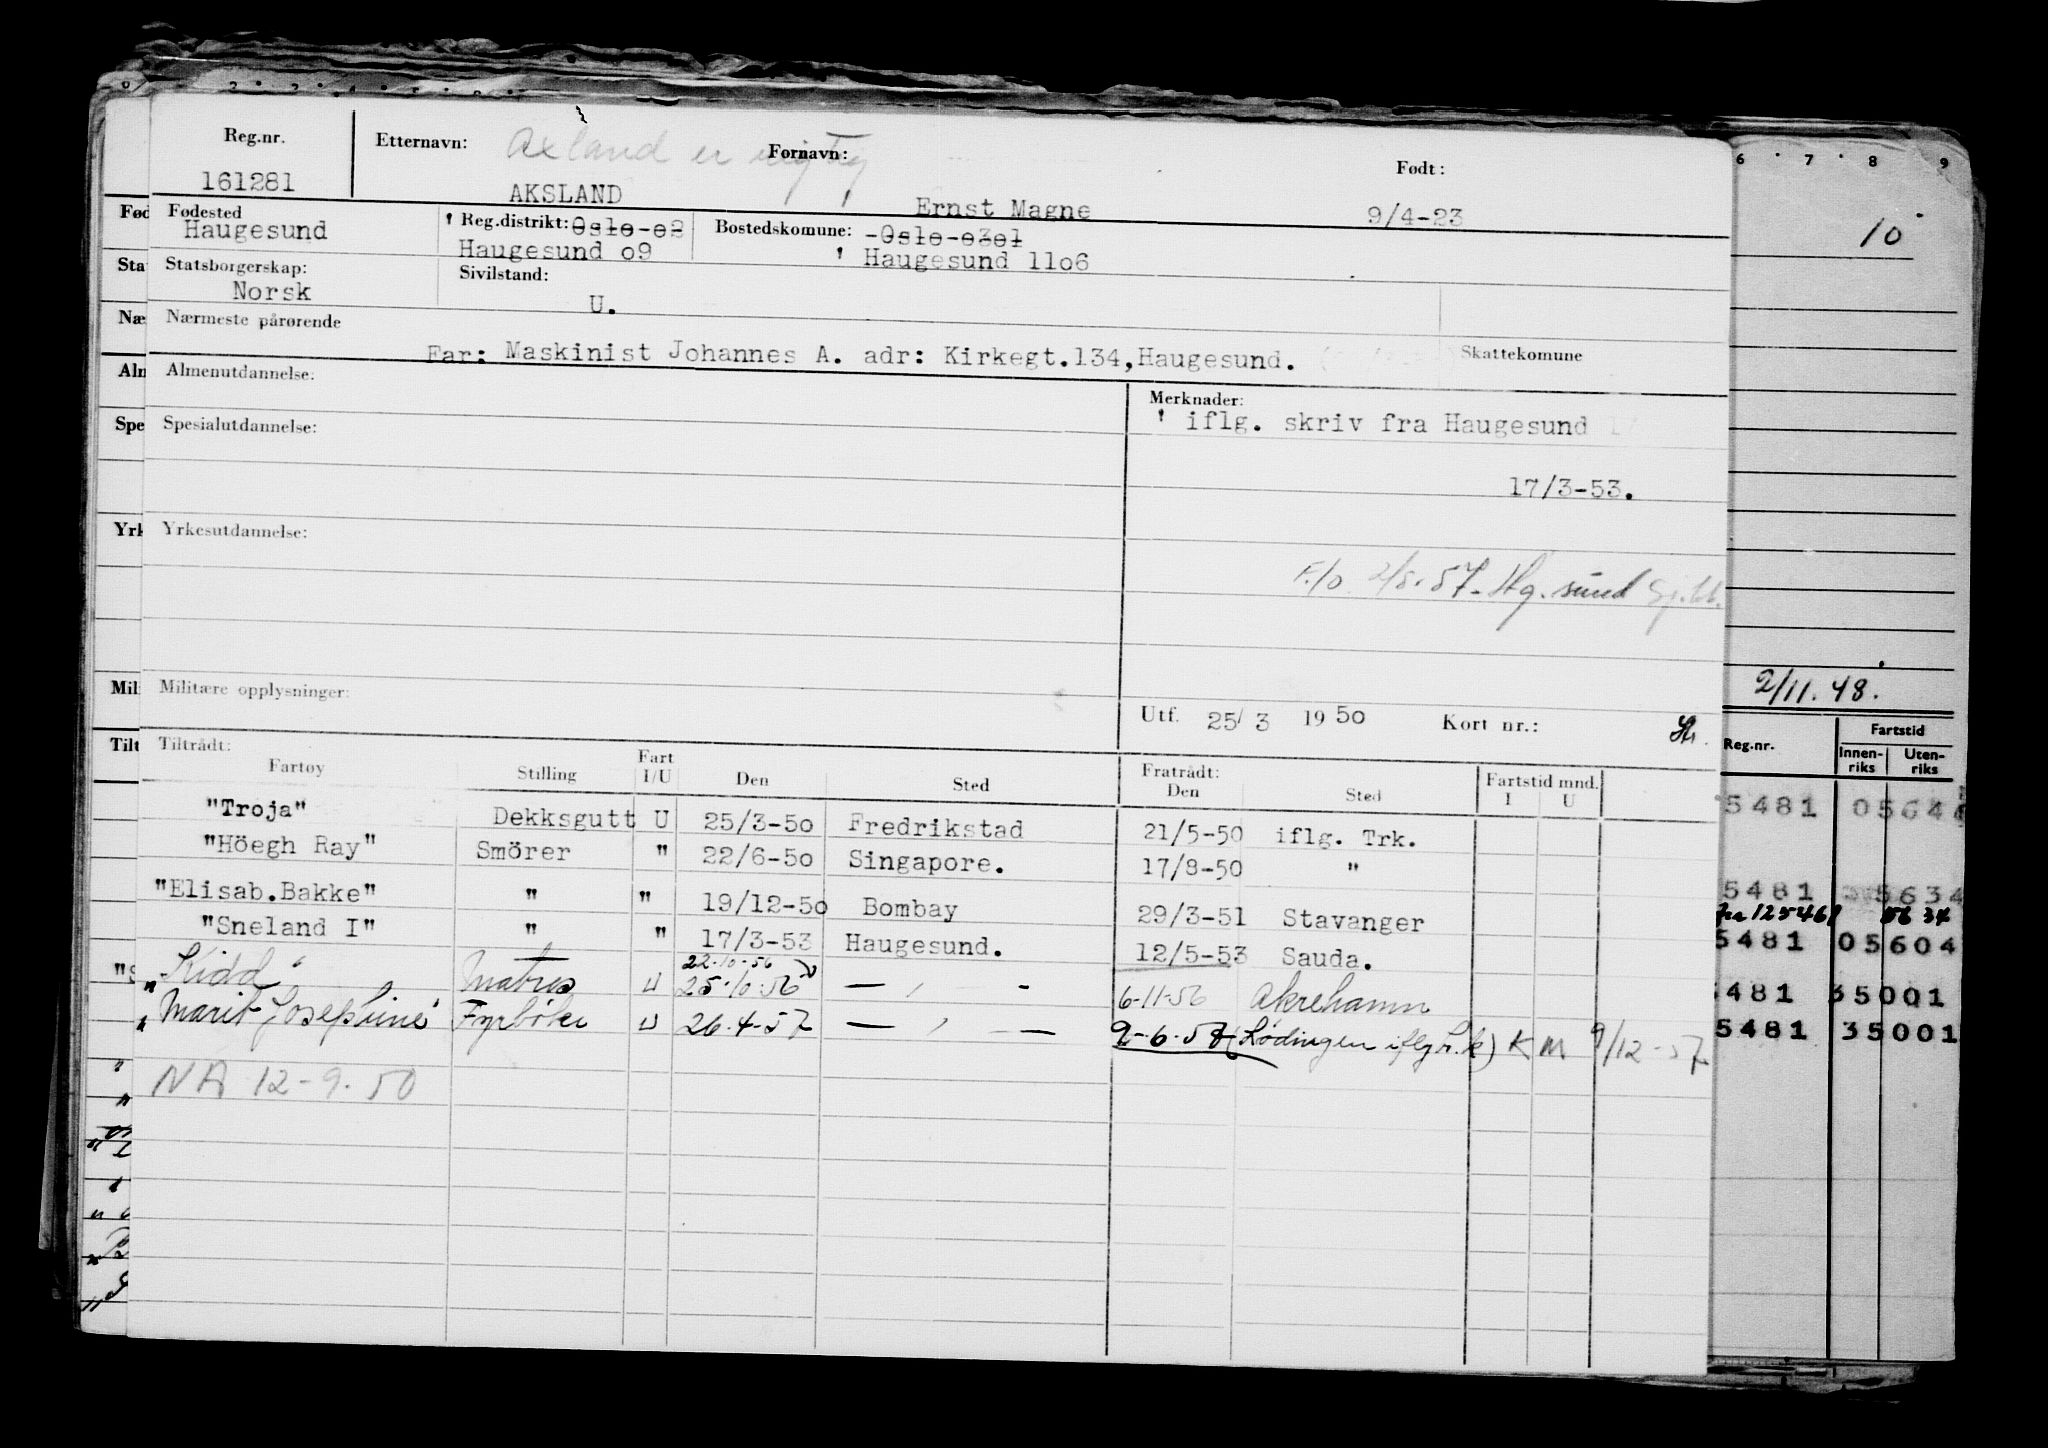 Reg.nr. Etternavn: Axland er riktig Fornavn: Født:
161281 AKSLAND Ernst Magne 9/4-23
Fødested Haugesund ' Reg.distrikt: Oslo-o2 Bostedskomune: -Oslo-o3o1
Haugesund o9 ' Haugesund 11o6
Statsborgerskap: Norsk Sivilstand: U.
Nærmeste pårørende
Far: Maskinist Johannes A. adr: Kirkegt.134,Haugesund. Skattekomune
Almenutdannelse: Merknader:
' iflg. skriv fra Haugesund
Spesialutdannelse:
17/3-53.
Yrkesutdannelse:
F/o 2/8-57- Hg.sund
Militære opplysninger:
Utf. 25/ 3 1950 Kort nr.:
Tiltrådt: Fratrådt:
Fartøy Stilling Fart I/U Den Sted Den Sted Fartstid mnd. I U
"Troja" Dekksgutt U 25/3-50 Fredrikstad 21/5-50 iflg. Trk.
"Höegh Ray" Smörer " 22/6-50 Singapore. 17/8-50 "
"Elisab.Bakke" " " 19/12-50 Bombay 29/3-51 Stavanger
"Sneland I" " " 17/3-53 Haugesund. 12/5-53 Sauda.
22-10-56
"Kidd" Matros U 25-10-56 — " - 6-11-56 Akrehamn
"Marit Josephine" Fyrböter U 26-4-57 — " — 9-6-57 (Lødingen iflg r.k) K M 9/12-57
NA 12-9.50
6 7 8 9
10
2/11.48.
Reg.nr. Fartstid
Innen-riks Uten-riks
5481 05644
5481 5634
125461 0634
5481 05604
481 35001
5481 35001
Fød
Sta
Næ
Alm
Spe
Yrk
Mil
Tilt